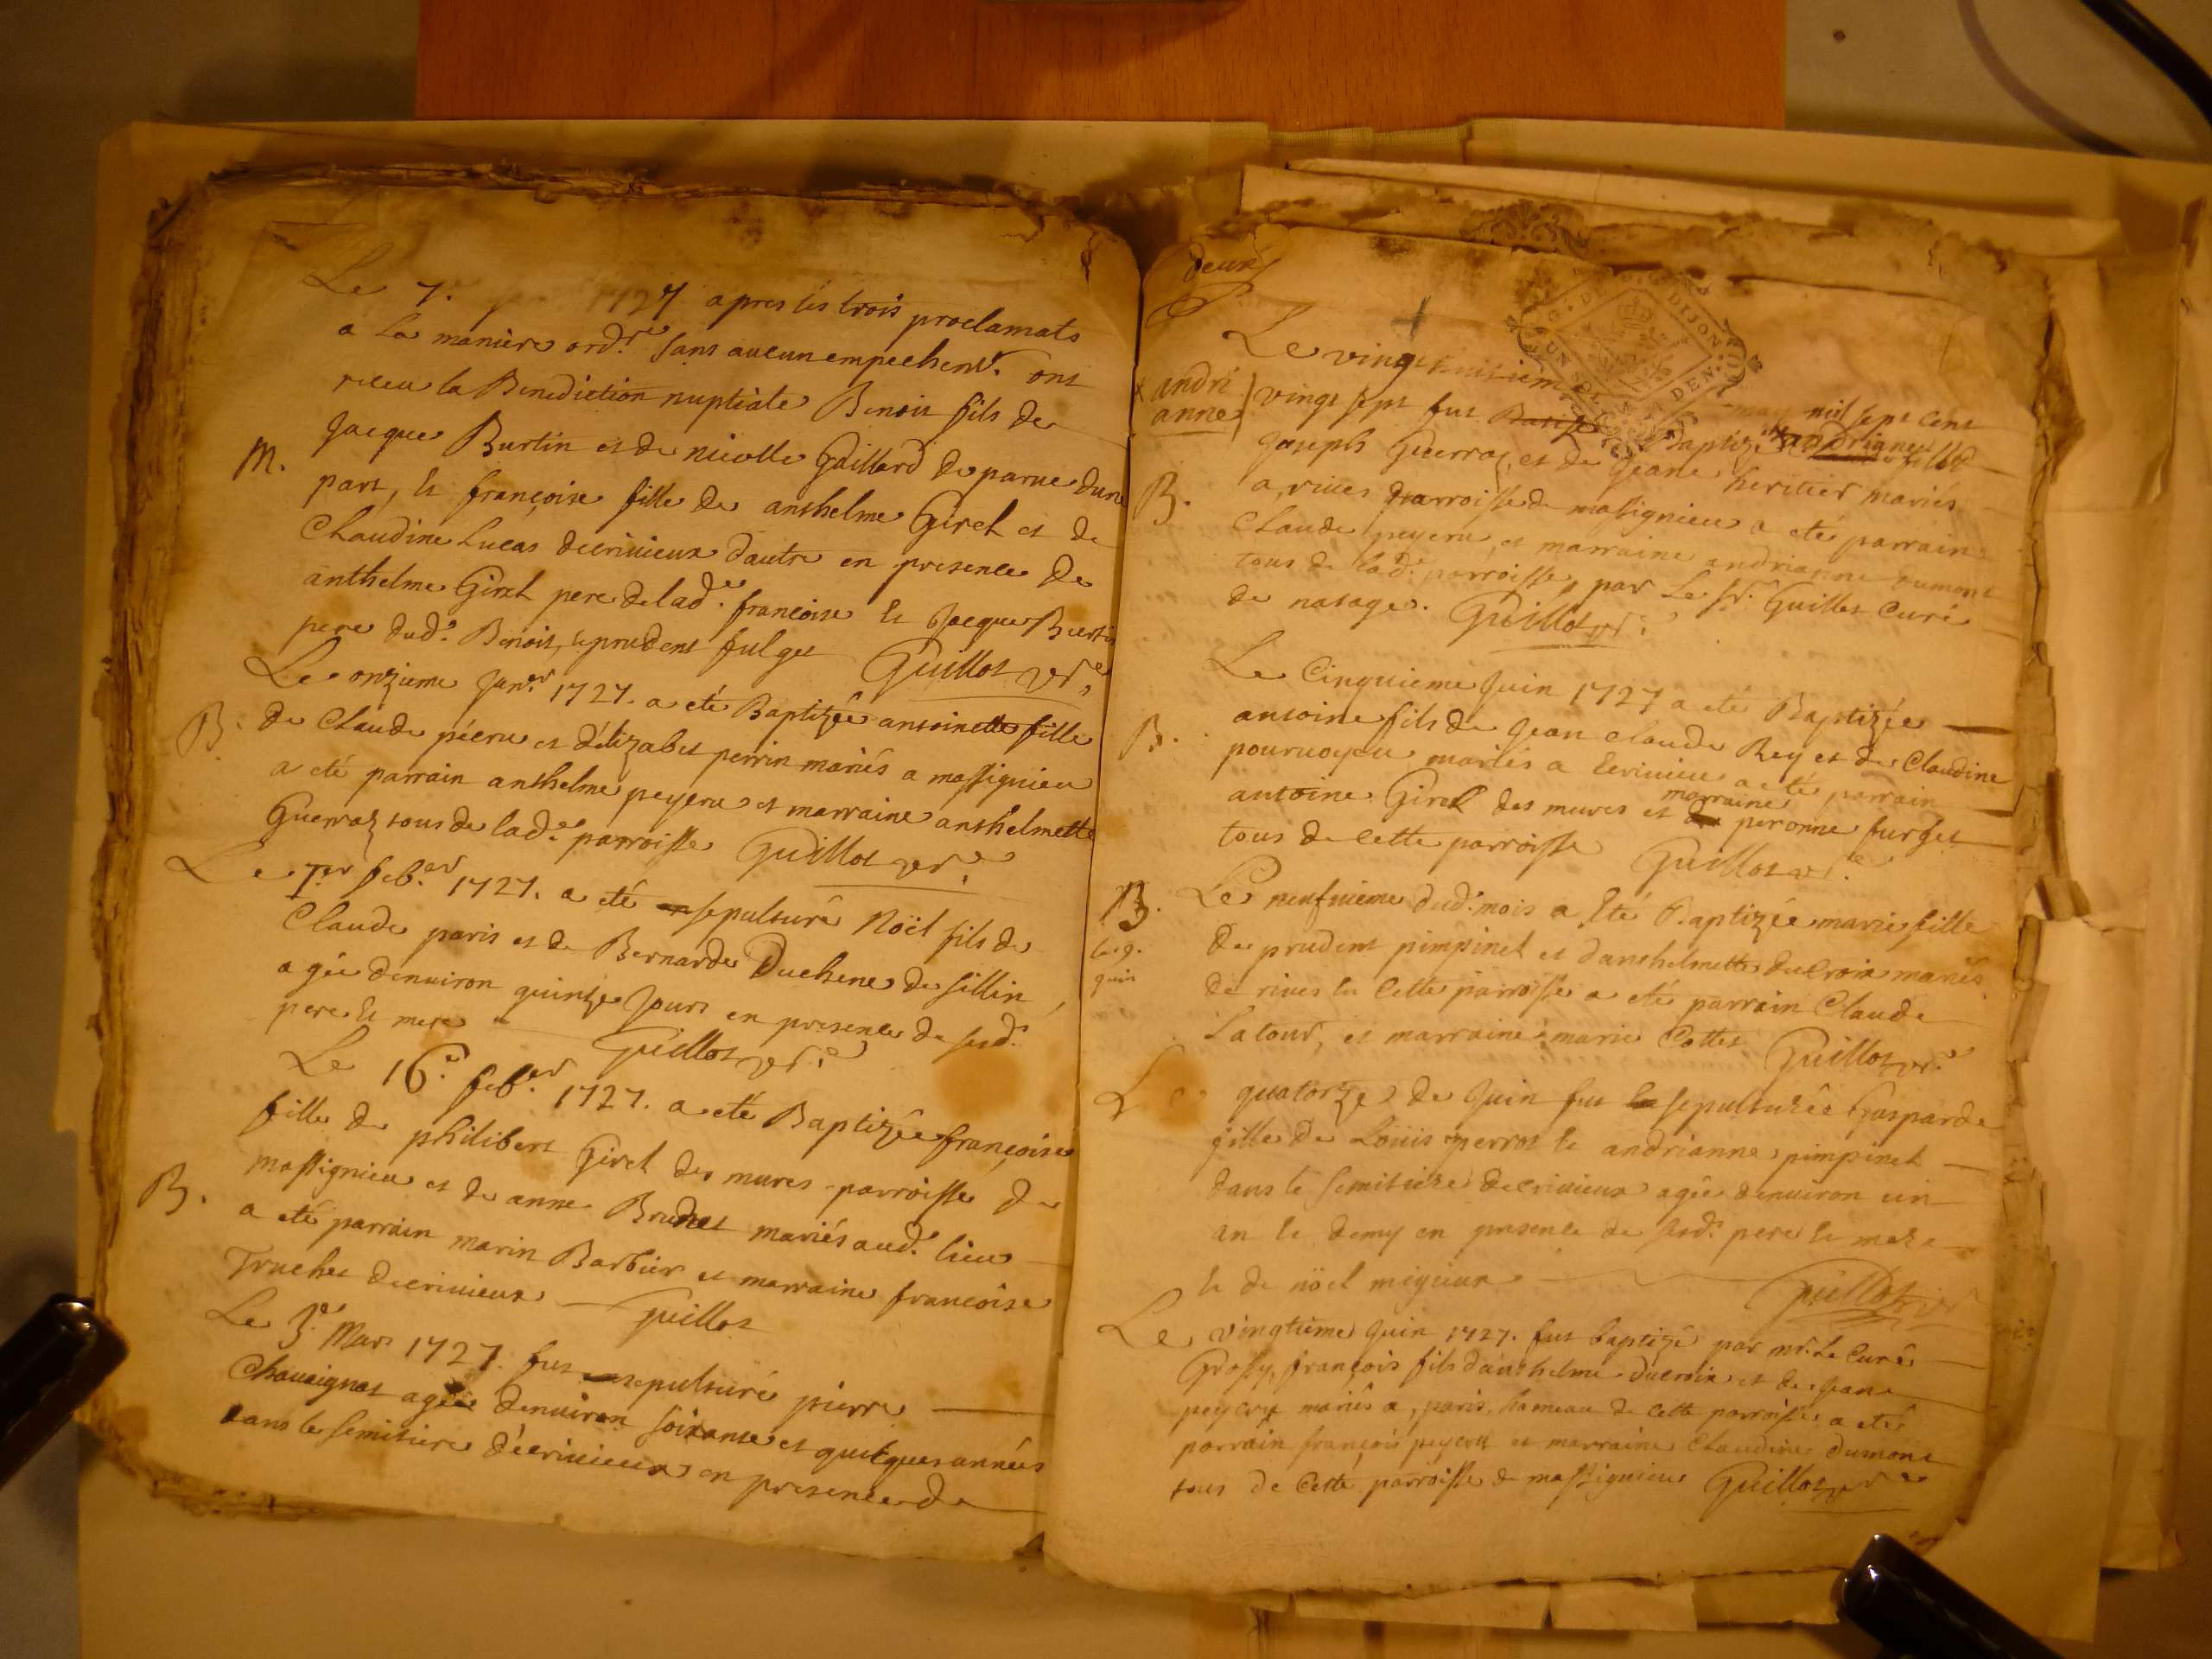 Le 7. 1727 apres les trois proclamats
a la maniere ord.re sans aucun empechem.t ont
receu la Benediction nuptiale Benoit fils de
Jacque Burtin et de nicolle Gaillard de parue dune
M.
part, et françoise fille de anthelme Girel et de
Claudine Lucas decrivieux dautre en presence de
anthelme Girel pere de lad.e francoise et Jacque Burtin
pere dud.t Benoit, et prudent fulget Guillot
Le onzieme Janv.er 1727. a eté Baptizée antoinette fille
B. de Claude péeru et délizabet perrin mariés a massignieu
a eté parrain anthelme peyeru et marraine anthelmette
Guerraz tous de lad.e parroisse Guillot
Le 7.er feb.er 1727. a eté sepulturé Noël fils de
Claude paris et de Bernarde Duchene de sillin
agée denviron quinze Jours en presence de sesd.
pere et mere Guillot
Le 16.e feb.er 1727. a eté Baptizée françoise
fille de philibert Girel des mures parroisse de
massignieu et de anne Brunet mariés aud. lieu
B. a eté parrain marin Barbier et marraine francoise
Truchet decrivieux Guillot
Le 3.e Mars 1727. fut sepulturé pierre
Chavaignat agée denviron soixante et quelques années
dans le semitiere décrivieux en presence de
deux
Le vingthuitieme may mil sept cent
andri
anne
vingt sept fut Baptizé andrianne fille
Joseph Guerraz, et de Jeane heritier mariés
B.
a, rives parroisse de massignieu a eté parrain
Claude peyeru, et marraine andrianne dumont
tous de lad.e parroisse, par Le s.r Guillet Curé
de natage. Guillot
Le Cinquieme Juin 1727 a eté Baptizée
B. antoine fils de Jean claude Rey et de Claudine
pourvoyeu mariés a Ecrivieu a eté parrain
marraine
antoine Girel des mures et peronne furget
tous de cette parroisse Guillot
B. Le neufvieme dud. mois a Eté Baptizée marie fille
de prudent pimpinel et danthelmette ducroix mariés
de rives en Cette parroisse a eté parrain Claude
Latour, et marraine marie Cottet Guillot
Le quatorze de Juin fut sepulturée Gasparde
fille de Loüis perrot et andrianne pimpinel
dans le semitiere decrivieux agée denviron un
an et demy en presence de sesd. pere et mere
et de nöel migieux Guillot
Le vingtieme Juin 1727. fut baptizé par mr. Le Curé
Grossy, françois fils danthelme ducroix et de Jeane
peycru mariés a, paris, hameau de cette parroisse a eté
parrain françois peycru et marraine Claudine dumont
tous de Cette parroisse de massignieu Guillot